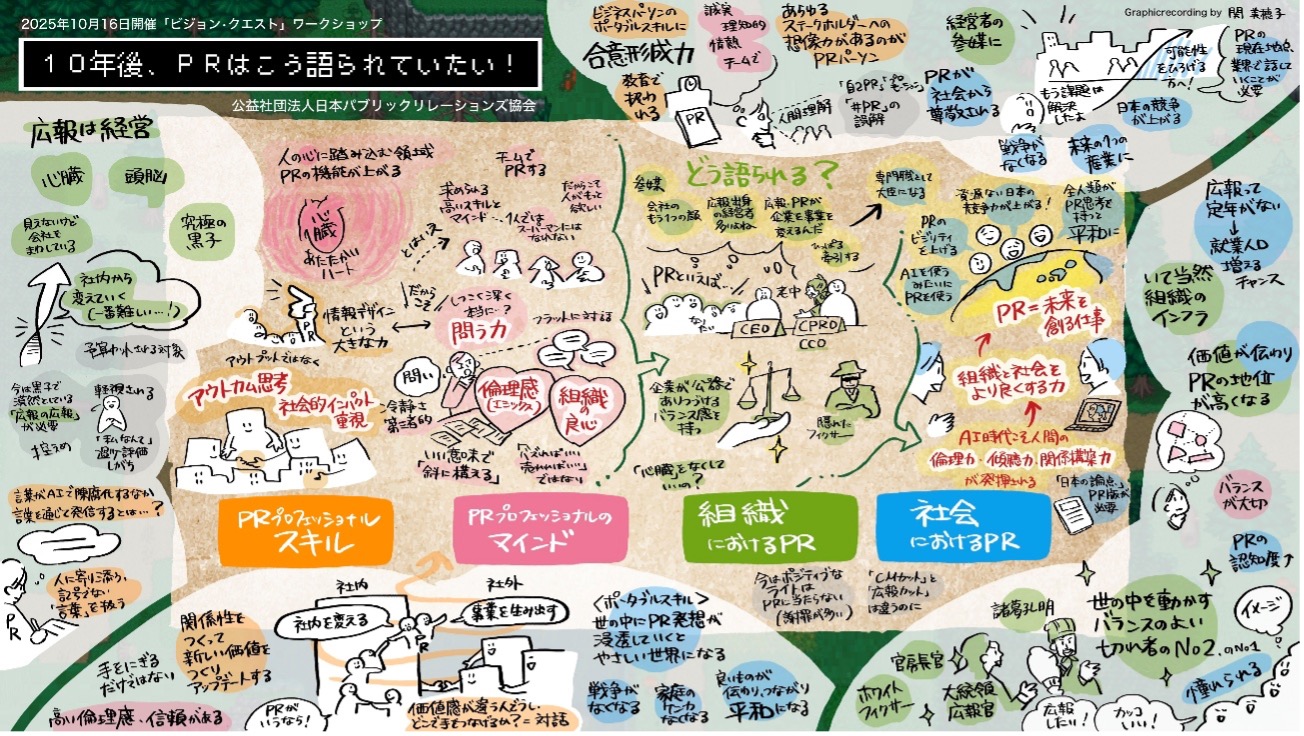 2025年10月16日開催「ビジョン・クエスト」ワークショップ
10年後、PRはこう語られていたい!
公益社団法人日本パブリックリレーションズ協会
Graphicrecording by 関 美穂子
ビジネスパーソンの
ポータブルスキルに
合意形成力
誠実
理知的
情熱
チームで
あらゆる
ステークホルダーへの
想像力があるのが
PRパーソン
教育で
扱わ
れる
PR
人間理解
「自己PR」
「#PR」の
誤解
経営者の
参謀に
PRが
社会から
尊敬される
もう課題は
解決
したよ
可能性
をひろげる
方へ!
PRの
現在地点、
業界で話して
いくことが
必要
日本の競争
が上がる
戦争が
なくなる
未来の1つの
産業に
広報は経営
心臓
頭脳
見えないけど
会社を
まわしている
究極の
黒子
社内から
変えていく
(一番難しい…!)
予算カットされる対象
今は黒子で
漠然としている
「広報の広報」
が必要
控うめ
軽視される
「私なんて」
過少評価
しがち
言葉がAIで陳腐化するなか
言葉を通じて発信するとは…?
人に寄り添う、
記号でない
「言葉」を扱う
PR
人の心に踏み込む領域
PRの機能が上がる
心臓
あたたかい
ハート
チームで
PRする
求められる
高いスキルと
マインド…
1人では
スーパーマンには
なれない
だからこそ
人がもっと
欲しい
とはいえ
だから
こそ
情報デザイン
という
大きな力
PR
しつこく深く
本当に…?
問う力
フラットに対話
アウトプットではなく
アウトカム思考
社会的インパクト
重視
問い
冷静さ
第三者的
倫理感
(エシックス)
組織
の
良心
いい意味で
「斜に構える」
「バズればいい」
売れればいい」
ではない
どう語られる?
参謀
会社の
もう1つの顔
広報出身
の経営者
多いよね
広報・PRが
企業を事業を
変えるんだ
ひっぱる
牽引する
PRといえば…
なり
たい
CEO
老中
CPRO
CCO
企業が公器で
ありつづける
バランス感を
持つ
隠れた
フィクサー
「心臓」をなくして
いいの?
専門職として
大臣になる
PRの
ビジビリティ
を上げる
AIを使う
みたいに
PRを使う
資源ない日本の
競争力が上がる!
全人類が
PR思考を
持って
平和に
PR=未来を
創る仕事
組織と社会を
より良くする力
AI時代こそ人間の
倫理力・傾聴力・関係構築力
が発揮される
「日本の論点」
PR版が
必要
広報って
定年がない
↓
就業人口
増える
チャンス
いて当然
組織の
インフラ
価値が伝わり
PRの地位
が高くなる
バランス
が大切
PRの
認知度↑
PRプロフェッショナル
スキル
PRプロフェッショナルの
マインド
組織
におけるPR
社会
におけるPR
関係性を
つくって
新しい価値を
つくり
アップデートする
手をにぎる
だけではない
高い倫理感、信頼がある
PRが
いうなら!
社内
社内を変える
社外
事業を生み出す
PR
価値感が違う人どうし、
どこで手をつなげるか?=対話
<ポータブルスキル>
世の中にPR発想が
浸透していくと
やさしい世界になる
戦争が
なくなる
家庭の
ケンカ
なくなる
良いものが
伝わり、つながり
平和になる
今はポジティブな
ライトは
PRに当たらない
(謝罪が多い)
「CMカット」と
「広報カット」
は違うのに
官房長官
ホワイト
フィクサー
諸葛孔明
大統領
広報官
世の中を動かす
バランスのよい
切れ者のNo2、のNo1
イメージ
憧れられる
広報
したい!
カッコ
いい!